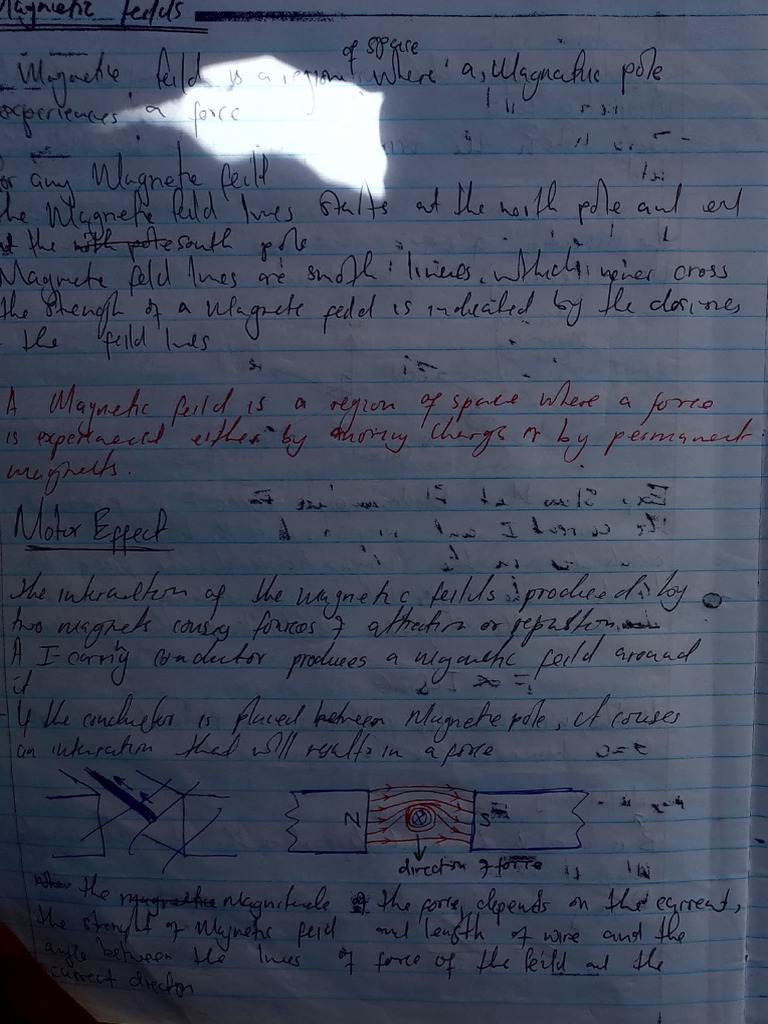 Magnetic feilds
of space
Magnetic feild is a region where a Magnatic pole
experiences a force
or any Magnetic feild
he Magnetic feild lines starts at the north pole and end
at the north pole south pole
Magnetic feild lines are smoth linines, which never cross
the strength of a Magnetic feild is indicated by the
the feild lines
A Magnetic feild is a region of space where a force
is experienced either by moving charge or by permanent
magnets.
Motor Effect
the interaction of the magnetic feilds produced by
two magnets causing forces of attraction or repulsion
A I carriy conductor produces a magnetic feild around
it
If the conductor is placed between Magnetic pole, it causes
an interaction that will results in a force
N S
direction of force
the Magnitude of the force, depends on the current,
the strenght of Magnetic feild and length of wire and the
angle between the lines of force of the feild and the
current direction